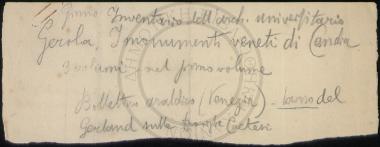 primo Inventario dell'arch. universitario
Gerola, I monumenti veneti di Candia
3 volumi nel primo volume
Bollettino araldico (Venezia) - lavoro del
Gerland sulla famiglia Caetani